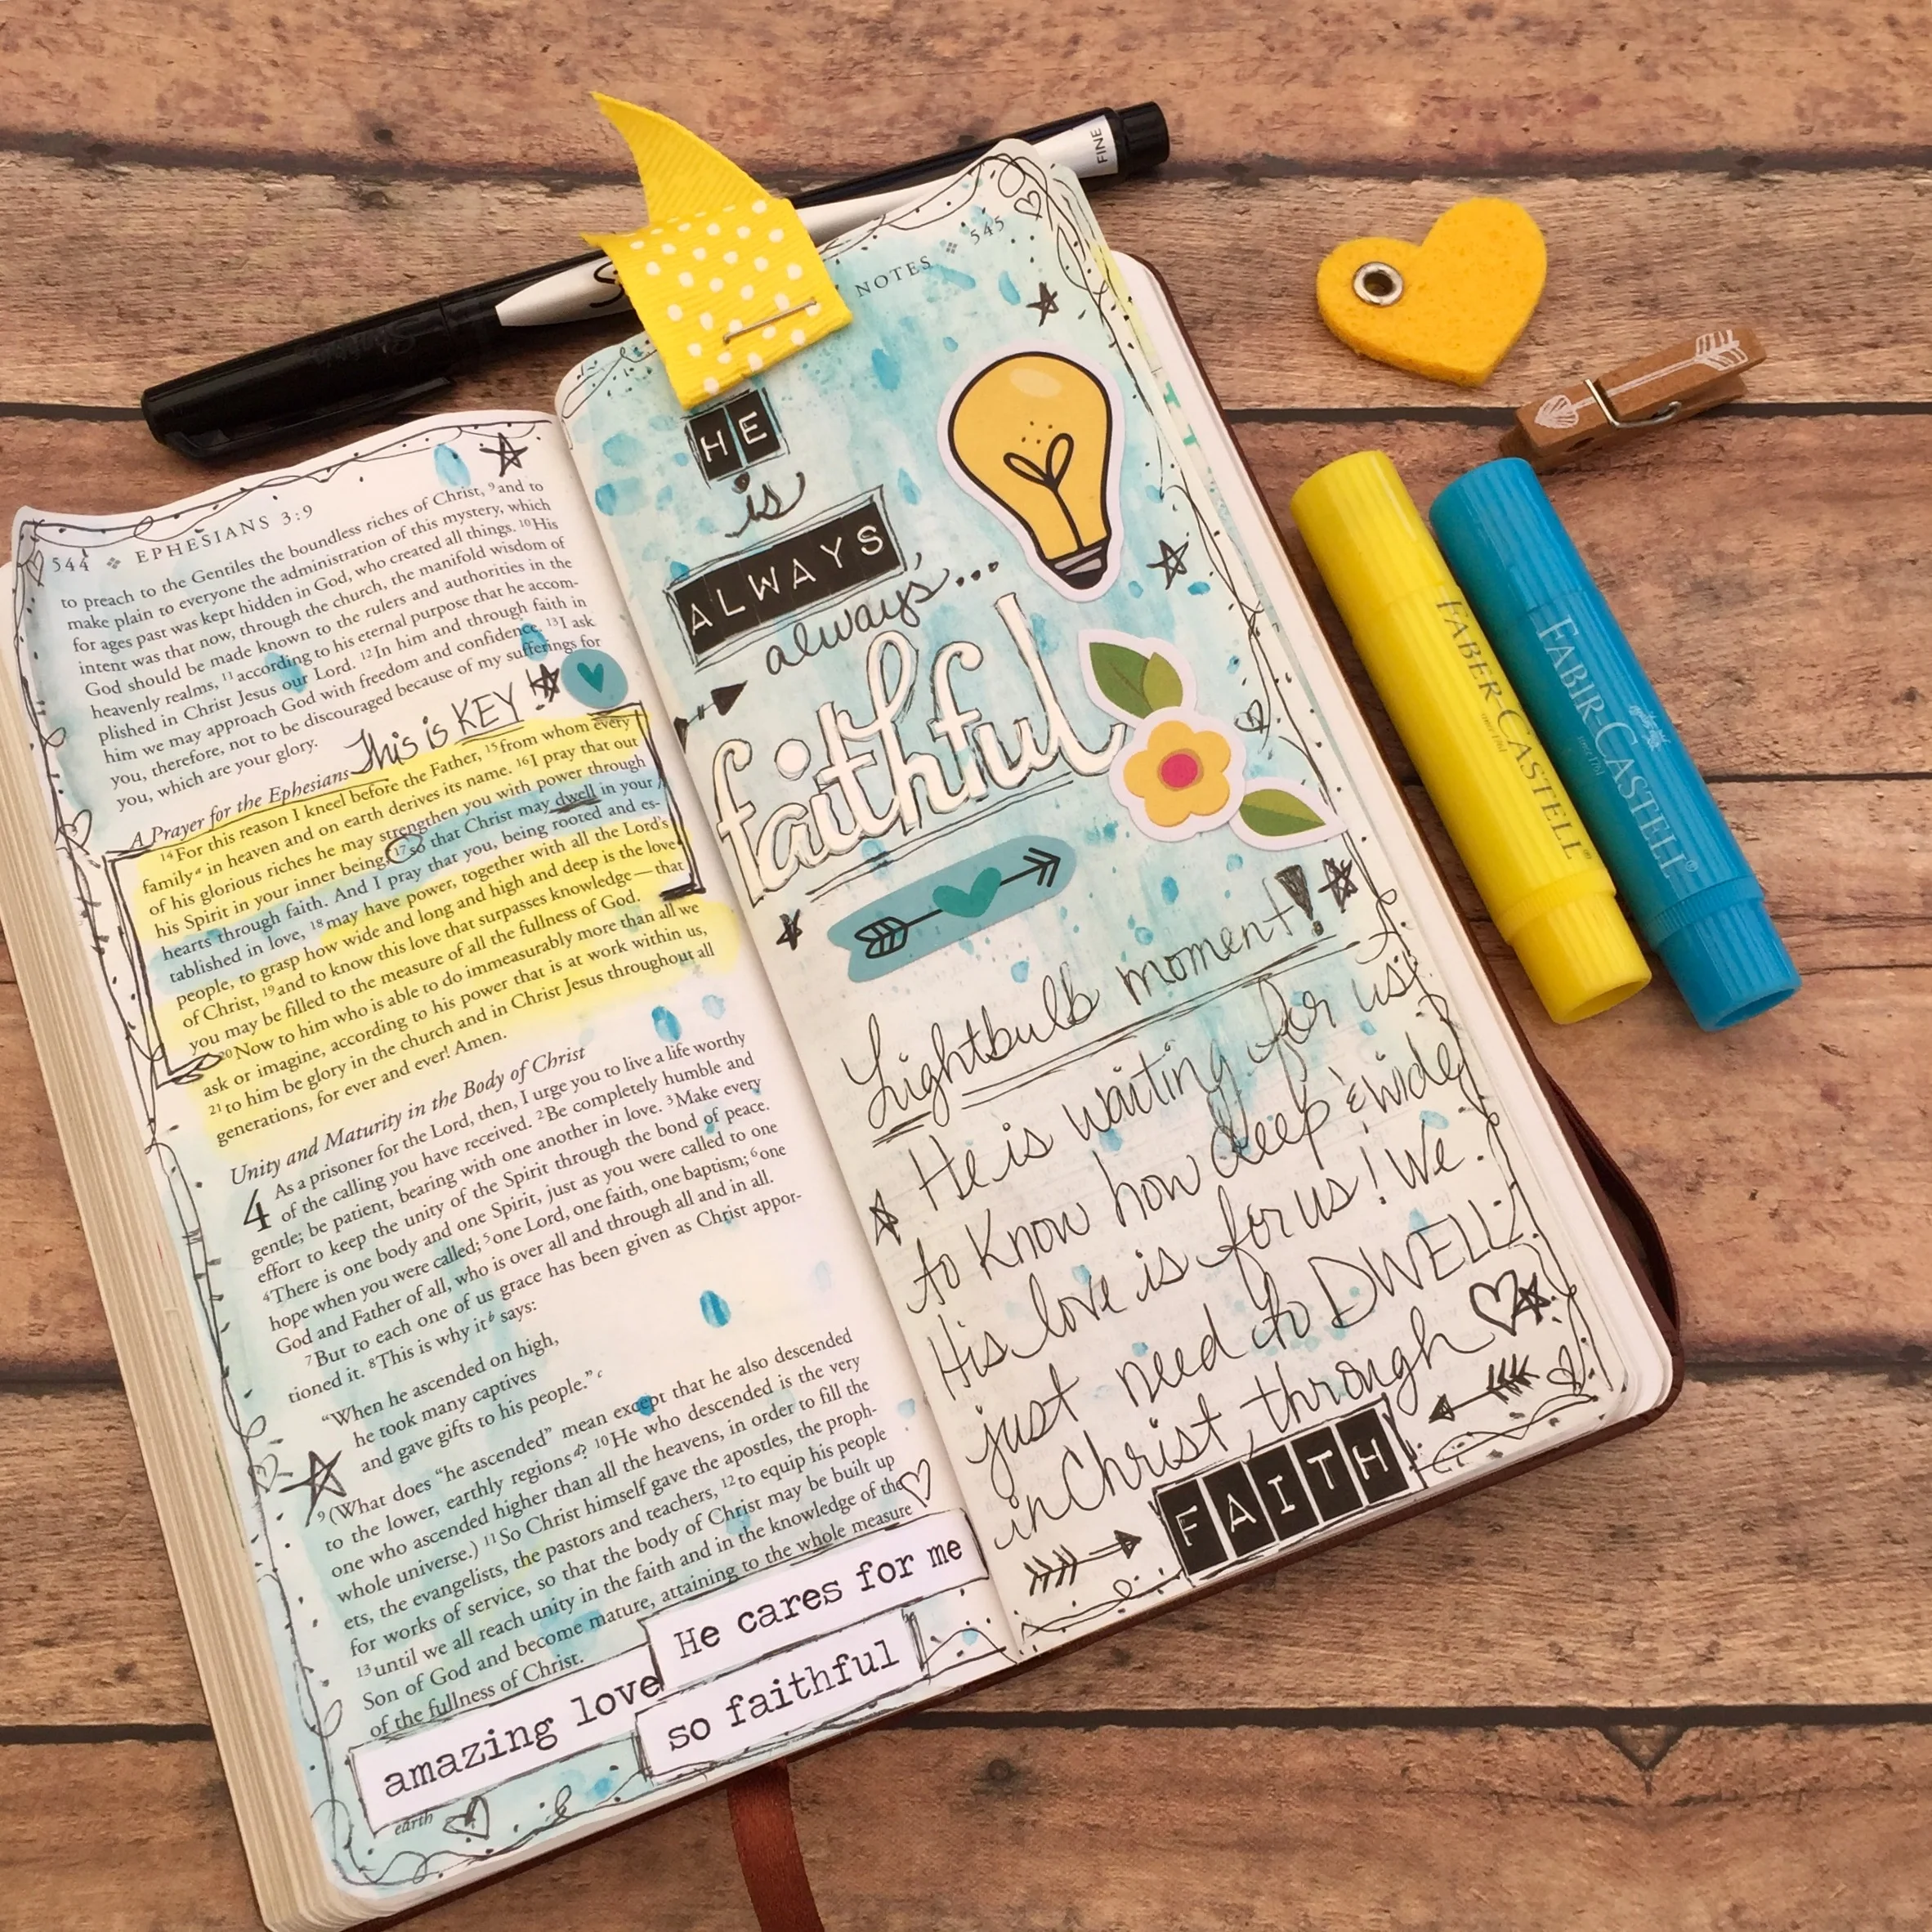 FINE
544 ❖ EPHESIANS 3:9
to preach to the Gentiles the boundless riches of Christ, 9 and to
make plain to everyone the administration of this mystery, which
for ages past was kept hidden in God, who created all things. 10 His
intent was that now, through the church, the manifold wisdom of
God should be made known to the rulers and authorities in the
heavenly realms, 11 according to his eternal purpose that he accom-
plished in Christ Jesus our Lord. 12 In him and through faith in
him we may approach God with freedom and confidence. 13 I ask
you, therefore, not to be discouraged because of my sufferings for
you, which are your glory.
This is KEY!
A Prayer for the Ephesians
14 For this reason I kneel before the Father, 15 from whom every
family a in heaven and on earth derives its name. 16 I pray that out
of his glorious riches he may strengthen you with power through
his Spirit in your inner being, 17 so that Christ may dwell in your
hearts through faith. And I pray that you, being rooted and es-
tablished in love, 18 may have power, together with all the Lord's
people, to grasp how wide and long and high and deep is the love
of Christ, 19 and to know this love that surpasses knowledge—that
you may be filled to the measure of all the fullness of God.
20 Now to him who is able to do immeasurably more than all we
ask or imagine, according to his power that is at work within us,
21 to him be glory in the church and in Christ Jesus throughout all
generations, for ever and ever! Amen.
Unity and Maturity in the Body of Christ
4 As a prisoner for the Lord, then, I urge you to live a life worthy
of the calling you have received. 2 Be completely humble and
gentle; be patient, bearing with one another in love. 3 Make every
effort to keep the unity of the Spirit through the bond of peace.
4 There is one body and one Spirit, just as you were called to one
hope when you were called; 5 one Lord, one faith, one baptism; 6 one
God and Father of all, who is over all and through all and in all.
7 But to each one of us grace has been given as Christ appor-
tioned it. 8 This is why it b says:
"When he ascended on high,
he took many captives
and gave gifts to his people." c
9 (What does "he ascended" mean except that he also descended
to the lower, earthly regions d? 10 He who descended is the very
one who ascended higher than all the heavens, in order to fill the
whole universe.) 11 So Christ himself gave the apostles, the proph-
ets, the evangelists, the pastors and teachers, 12 to equip his people
for works of service, so that the body of Christ may be built up
13 until we all reach unity in the faith and in the knowledge of the
Son of God and become mature, attaining to the whole measure
of the fullness of Christ.
He cares for me
amazing love
so faithful
earth
NOTES ❖ 545
HE
is
ALWAYS
always...
faithful
Lightbulb moment!
He is waiting for us
to Know how deep & wide
His love is for us! We
just need to DWELL
in Christ, through
FAITH
FABER-CASTELL®
since 1761
FABER-CASTELL®
since 1761